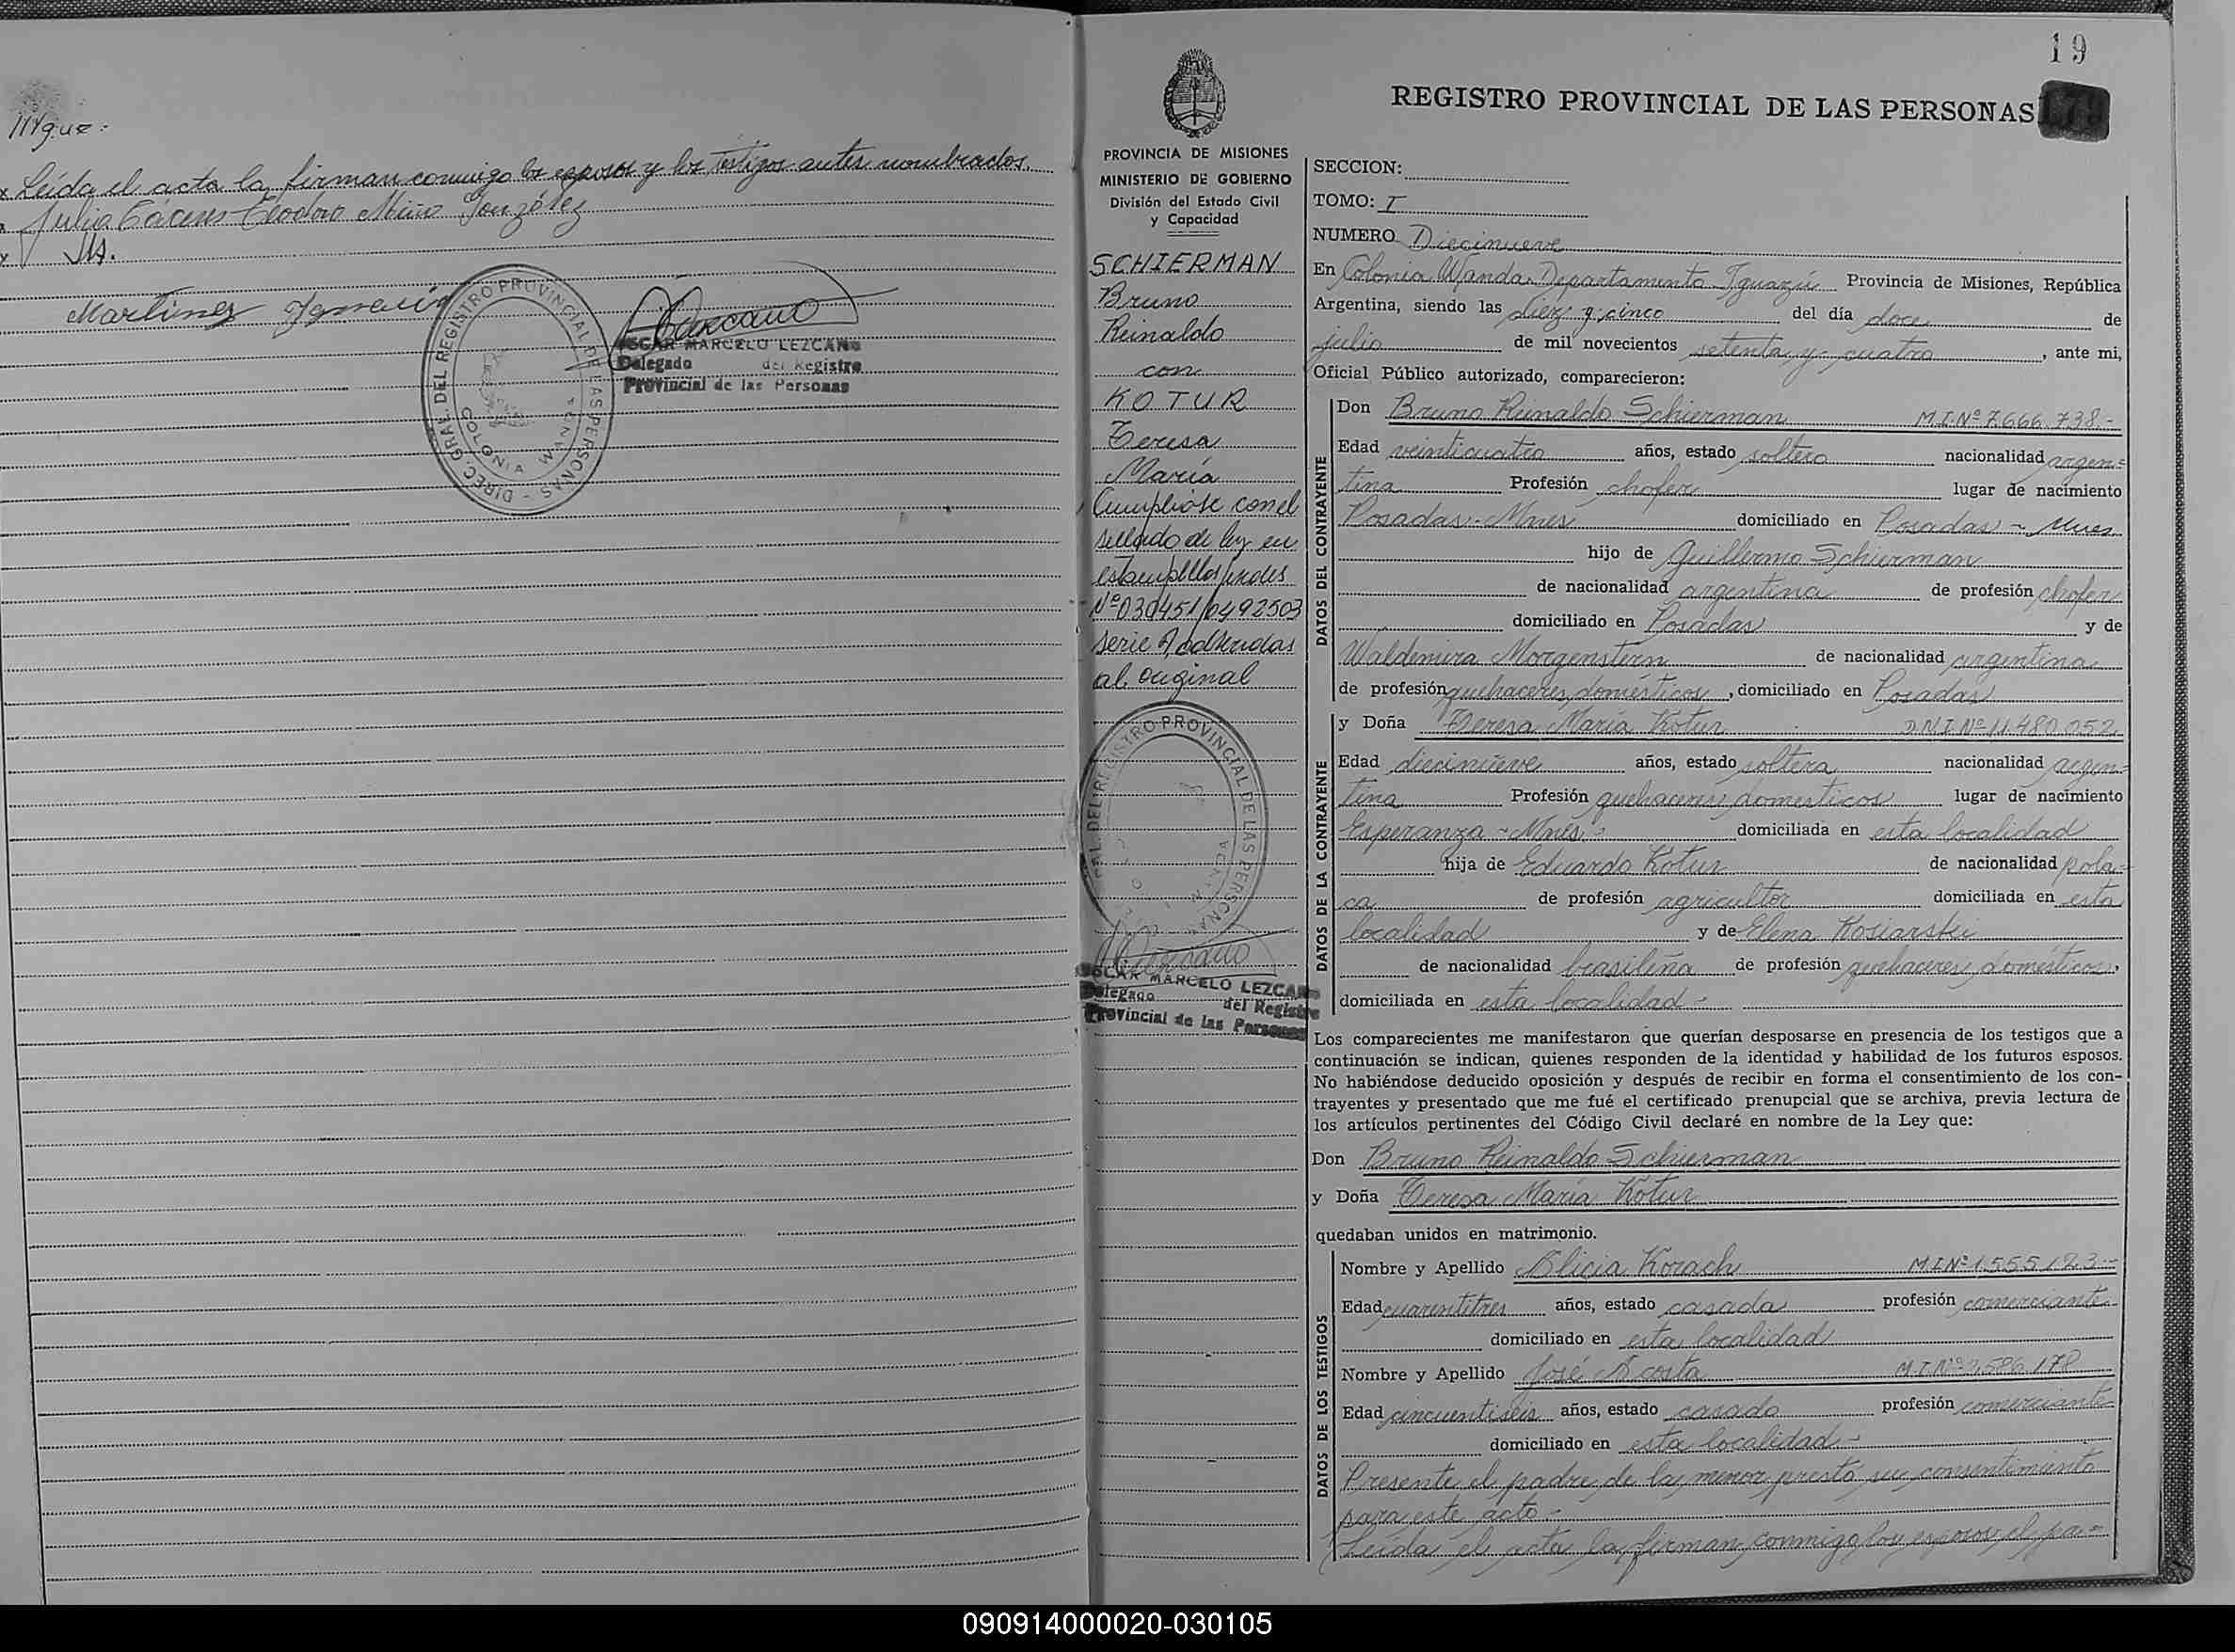 ///gue:
Leída el acta la firman conmigo los esposos y los testigos antes nombrados.
Julia Cáceres Teodoro Miño González
Martinez Ignacio
DIREC. GRAL. DEL REGISTRO PROVINCIAL DE LAS PERSONAS
COLONIA WANDA
OSCAR MARCELO LEZCANO
Delegado del Registro
Provincial de las Personas
19
REGISTRO PROVINCIAL DE LAS PERSONAS
PROVINCIA DE MISIONES
MINISTERIO DE GOBIERNO
División del Estado Civil
y Capacidad
SCHIERMAN
Bruno
Reinaldo
con
KOTUR
Teresa
María
Cumplióse con el
sellado de ley en
estampillas fiscales
Nº 030451/0492503
serie A adheridas
al original
OSCAR MARCELO LEZCANO
Delegado del Registro
Provincial de las Personas
SECCION:
TOMO: I
NUMERO Diecinueve
En Colonia Wanda Departamento Iguazú Provincia de Misiones, República
Argentina, siendo las diez y cinco del día doce de
julio de mil novecientos setenta y cuatro, ante mi,
Oficial Público autorizado, comparecieron:
DATOS DEL CONTRAYENTE
Don Bruno Reinaldo Schierman M.I.Nº 7.666.738.-
Edad veinticuatro años, estado soltero nacionalidad argen=
tina Profesión chofer lugar de nacimiento
Posadas-Mnes domiciliado en Posadas - Mnes
hijo de Guillermo Schierman
de nacionalidad argentina de profesión chofer
domiciliado en Posadas y de
Waldemira Morgenstern de nacionalidad argentina
de profesión quehaceres domésticos, domiciliado en Posadas
DATOS DE LA CONTRAYENTE
y Doña Teresa María Kotur D.N.I.Nº 11.480.052
Edad diecinueve años, estado soltera nacionalidad argen=
tina Profesión quehaceres domesticos lugar de nacimiento
Esperanza - Mnes.- domiciliada en esta localidad
hija de Eduardo Kotur de nacionalidad pola=
ca de profesión agricultor domiciliada en esta
localidad y de Elena Kosiarski
de nacionalidad brasileña de profesión quehaceres domésticos,
domiciliada en esta localidad -
Los comparecientes me manifestaron que querían desposarse en presencia de los testigos que a
continuación se indican, quienes responden de la identidad y habilidad de los futuros esposos.
No habiéndose deducido oposición y después de recibir en forma el consentimiento de los con-
trayentes y presentado que me fué el certificado prenupcial que se archiva, previa lectura de
los artículos pertinentes del Código Civil declaré en nombre de la Ley que:
Don Bruno Reinaldo Schierman
y Doña Teresa María Kotur
quedaban unidos en matrimonio.
DATOS DE LOS TESTIGOS
Nombre y Apellido Alicia Korach M.I.Nº 1.555.123-
Edad cuarentitres años, estado casada profesión comerciante
domiciliado en esta localidad
Nombre y Apellido José Acosta M.I.Nº 2.586.178
Edad cincuentiseis años, estado casado profesión comerciante
domiciliado en esta localidad -
Presente el padre de la menor prestó su consentimiento
para este acto -
Leída el acta la firman conmigo los esposos, el pa=
090914000020-030105